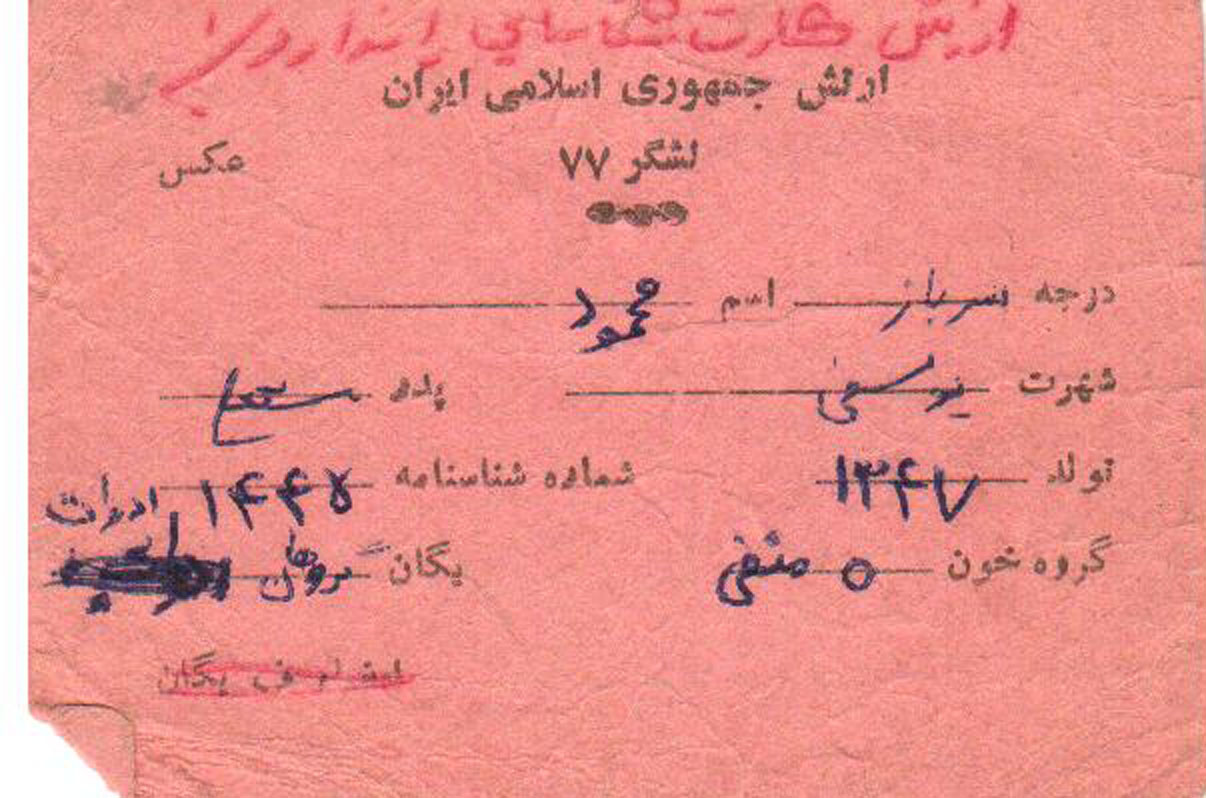 ارزش کارت شناسایی را ندارد
ارتش جمهوری اسلامی ایران
لشگر ۷۷
عکس
درجه سرباز اسم محمود
شهرت یوسفی پدر
تولد ۱۳۴۷ شماره شناسنامه ۱۴۴۵ ادوات
گروه خون O منفی یگان گروهان
یگان